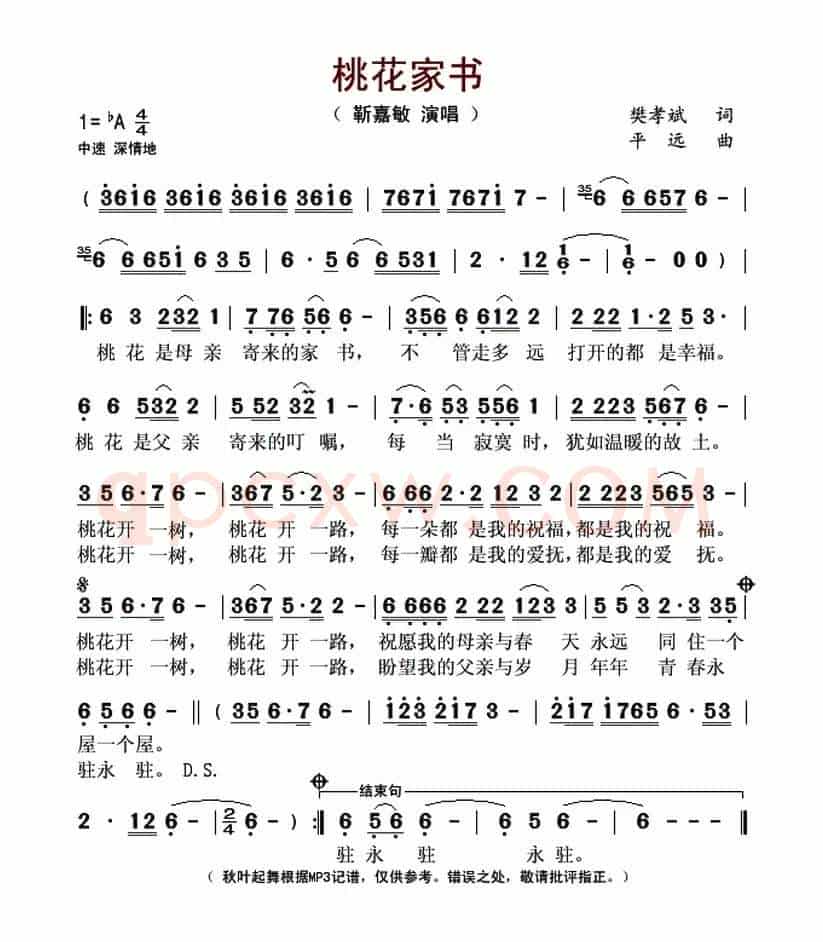 桃花家书
（ 靳嘉敏 演唱 ）
1=♭A 4/4
樊孝斌 词
中速 深情地
平 远 曲
( 3616 3616 3616 3616 | 7671 7671 7 - | 35 6 6 657 6 - |
35 6 6 651 6 3 5 | 6 · 5 6 6 531 | 2 · 12 1/6 - | 1/6 - 0 0 ) |
|: 6 3 232 1 | 7 76 56 6 - | 356 6 612 2 | 2 222 1·2 5 3· |
桃 花 是母 亲 寄来的家 书， 不 管走多 远 打开的都 是幸福。
6 6 532 2 | 5 52 32 1 - | 7·6 53 556 1 | 2 223 567 6 - |
桃 花 是父 亲 寄来的叮 嘱， 每 当 寂寞 时，犹如温暖的故 土。
3 5 6·7 6 - | 367 5·2 3 - | 6 66 2·2 12 3 2 | 2 223 565 3 - |
桃花开 一树， 桃花 开 一路， 每一朵都 是我的祝福，都是我的祝 福。
桃花开 一树， 桃花 开 一路， 每一瓣都 是我的爱抚，都是我的爱 抚。
3 5 6·7 6 - | 367 5·2 3 - | 6 666 2 22 123 3 | 5 5 3 2·3 35 |
桃花开 一树， 桃花 开 一路， 祝愿我的母亲与春 天 永远 同 住一个
桃花开 一树， 桃花 开 一路， 盼望我的父亲与岁 月 年年 青 春永
6 56 6 - || ( 35 6·7 6 - | 123 217 3 - | 217 1765 6 · 53 |
屋一个屋。
驻永 驻。D.S.
结束句
2 · 12 6 - | 2/4 6 - ) :| 6 56 6 - | 6 5 6 - | 6 - |
驻 永 驻 永 驻。
（ 秋叶起舞根据MP3记谱，仅供参考。错误之处，敬请批评指正。）
qpcxw.COM